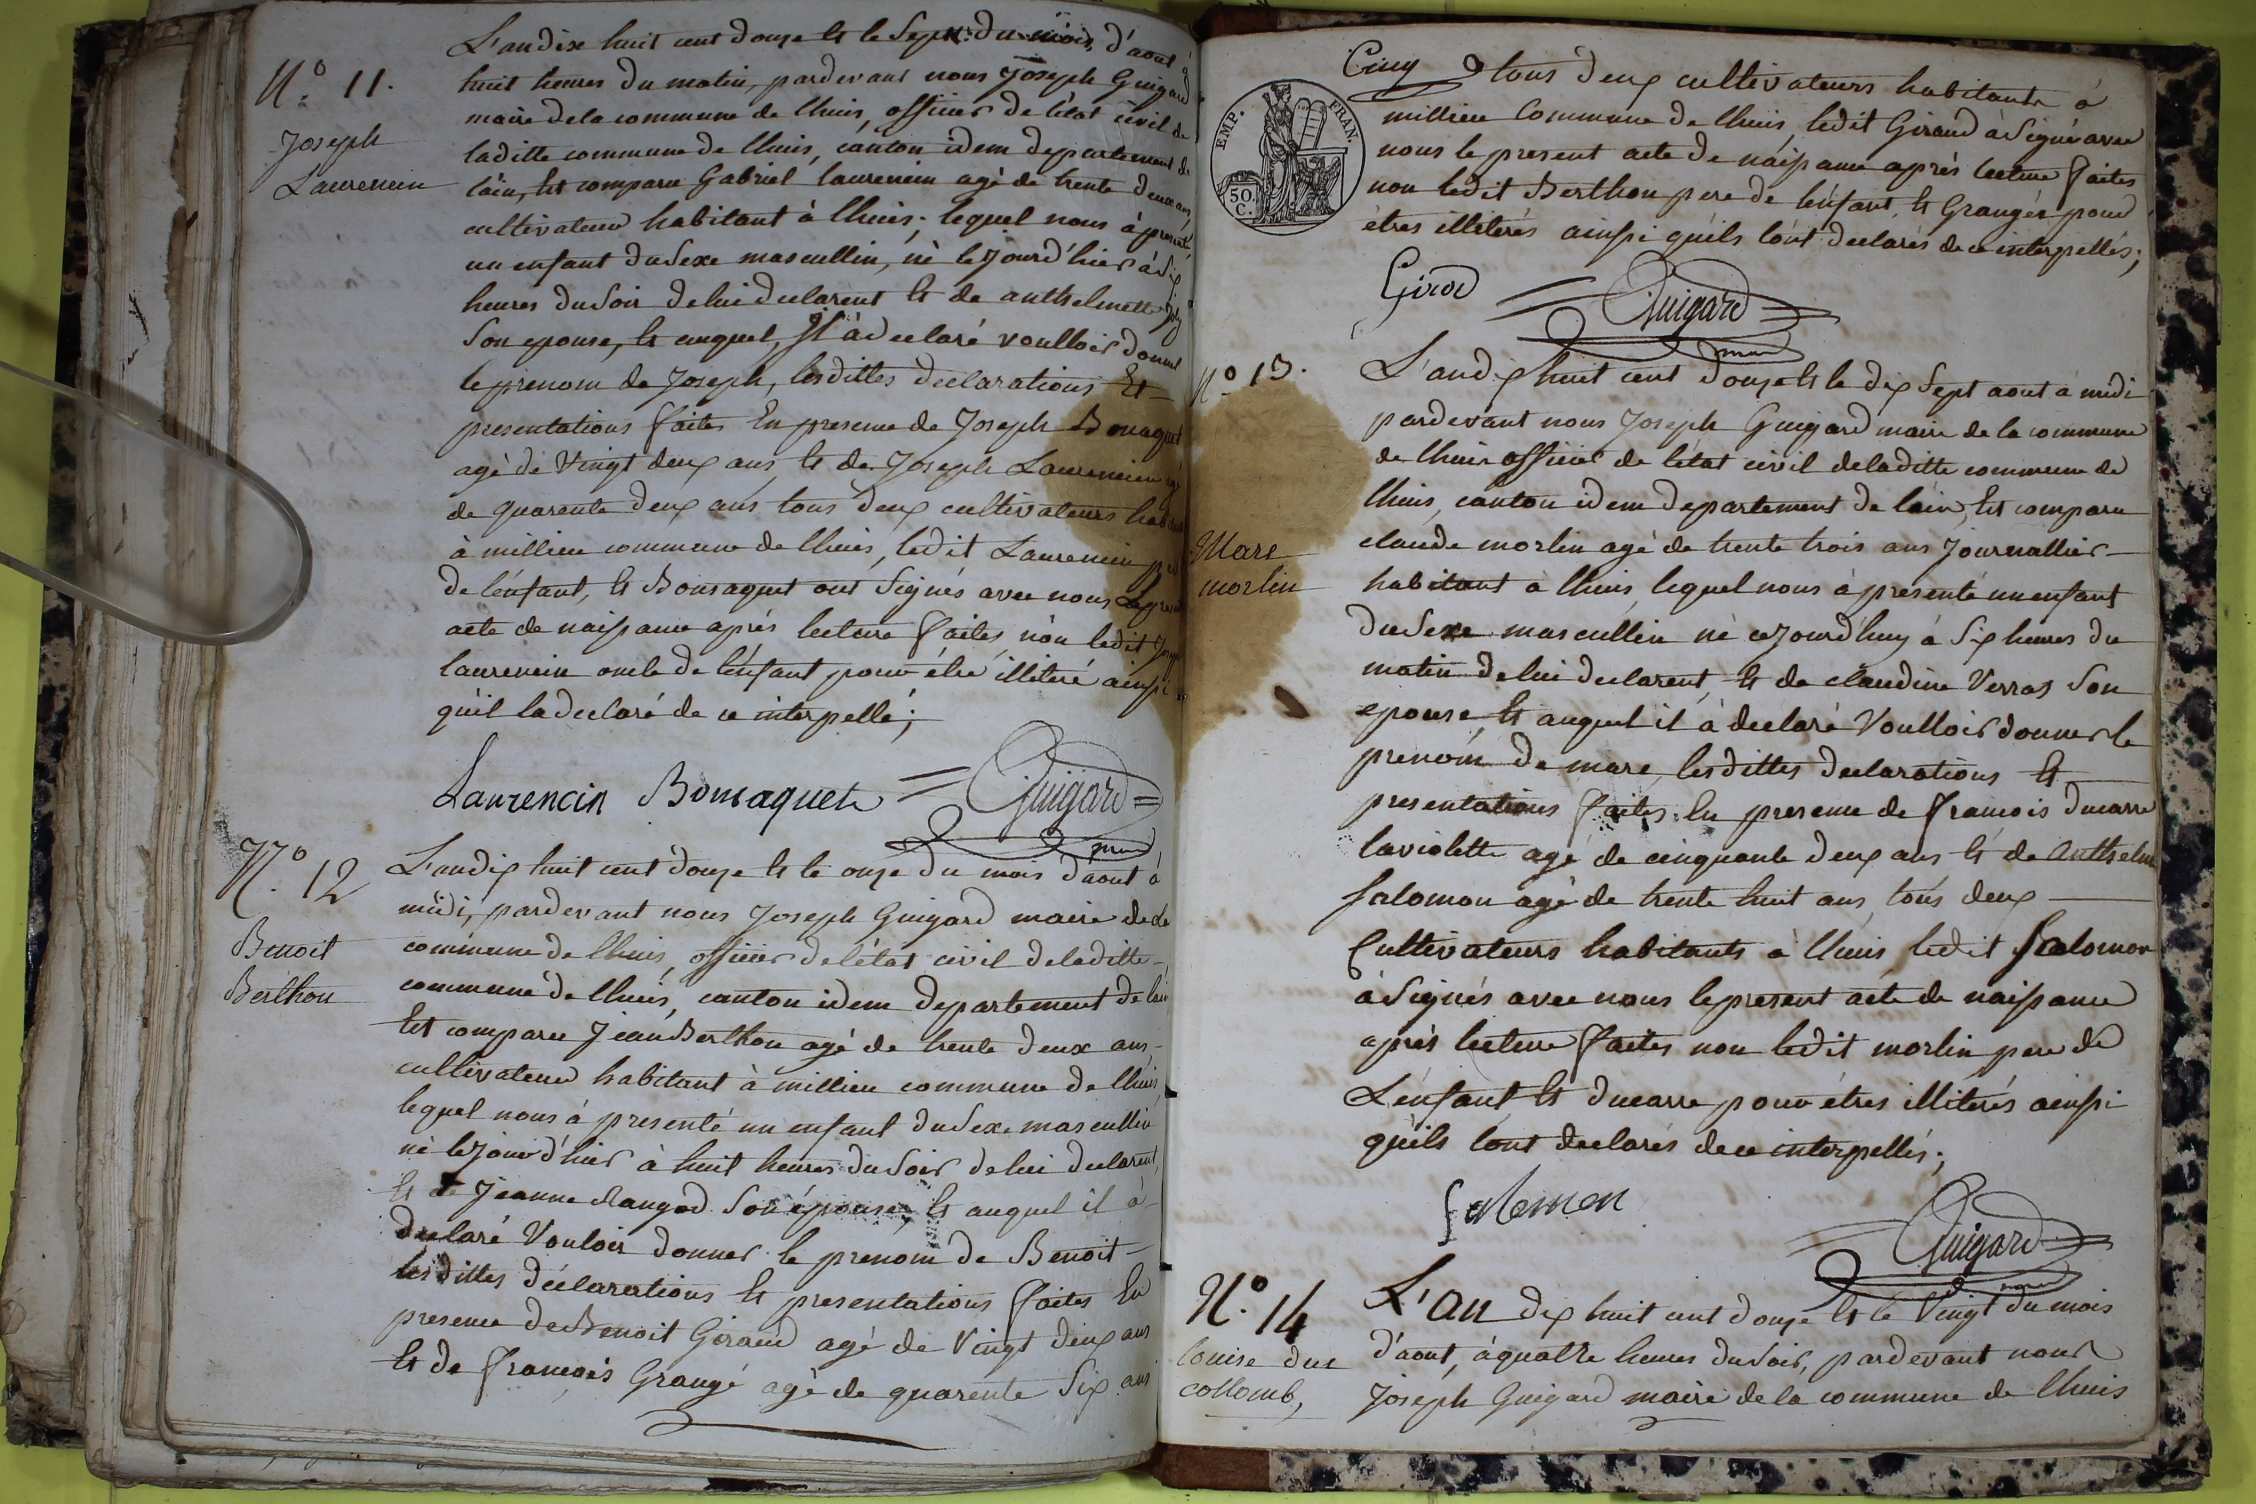 L'an dixe huit cent douze et le sept du mois d'aout à
N.° 11.
huit heures du matin, pardevant nous Joseph Guigard
maire de la commune de lhuis, officier de létat civil de
Joseph
Laurencin
laditte commune de lhuis, canton idem departement de
láin, Est comparu Gabriel laurencin agé de trente deux ans
cultivateur habitant à lhuis; lequel nous à presenté
un enfant du Sexe mascullin, né le jourd'hier à Six
heures du Soir de lui declarent Et de anthelmette Joly
Son epouse, Et auquel, Il à declaré voulloir donner
le prenom de Joseph, lesdittes declarations Et
presentations faites En presence de Joseph Bonaquet
agé de Vingt deux ans, Et de Joseph Laurencin agé
de quarente deux ans tous deux cultivateurs
à millieu commune de lhuis, ledit Laurencin
de lénfant, Et Bonsaquet ont Signés avec nous Le
acte de naissance aprés lecture faites, nón ledit
laurencin oncle de lénfant pour étre illiteré ainsi
qu'il la declaré de ce interpellé;
Laurencin Bonsaquet Guigard
maire
N.° 12
L'an dix huit cent douze Et le onze du mois d'aout à
midi, pardevant nous Joseph Guigard maire de la
Benoit
Berthon
commune de lhuis, officier de létat civil de laditte
commune de lhuis, canton idem departement de lain
Est comparu Jean Berthon agé de trente deux ans
cultivateur habitant à millieu commune de lhuis
lequel nous à presenté un enfant du Sexe mascullin
né le jour d'hier à huit heures du Soir de lui declarent,
Et de Jeanne Son épouse Et auquel il à
declaré Vouloir donner le prenom de Benoit
lesdittes déclarations Et presentations faites En
presence de Benoit Giraud agé de Vingt deux ans
Et de francois Grangé agé de quarente Six ans
Cinq tous deux cultivateurs habitants à
millieu Commune de lhuis, ledit Giraud à Signé avec
nous le present acte de náissance aprés lecture faites
non ledit Berthon pere de lénfant, Et Grangér pour
étres illiterés ainssi qúils lónt declarés de ce interpellés;
EMP. FRAN.
50.
C.
Giror Guigard
maire
N.° 13.
L'an dix huit cent douze Et le dix Sept aout à midi
pardevant nous Joseph Guigard maire de la commune
de lhuis officier de létat civil de laditte commune de
lhuis, canton idem departement de láin, Est comparu
claude morlin agé de trente trois ans Journallier
Marc
morlin
habitant à lhuis lequel nous à presenté un enfant
du Sexe mascullin né cejourd'huy à Six heures du
matin de lui declarent, Et de claudine Verras Son
epouse, Et auquel il à declaré Voulloir donner le
prenóm de marc, lesdittes declarations Et
presentations faites En presence de francois ducarre
laviolette agé de cinquante deux ans Et de anthelme
Salomon agé de trente huit ans, tous deux
Cultivateurs habitants à lhuis ledit Salomon
à Signés avec nous le present acte de naissance
aprés lecture faites non ledit morlin pere de
Lénfant Et ducarre pour étres illiterés ainssi
qúils lónt declarés de ce interpellés;
Salomon
Guigard
maire
N.° 14
L'an dix huit cent douze Et le Vingt du mois
louise duc
collomb,
d'áout, à quatre heures du Soir, pardevant nous
Joseph Guigard maire de la commune de lhuis